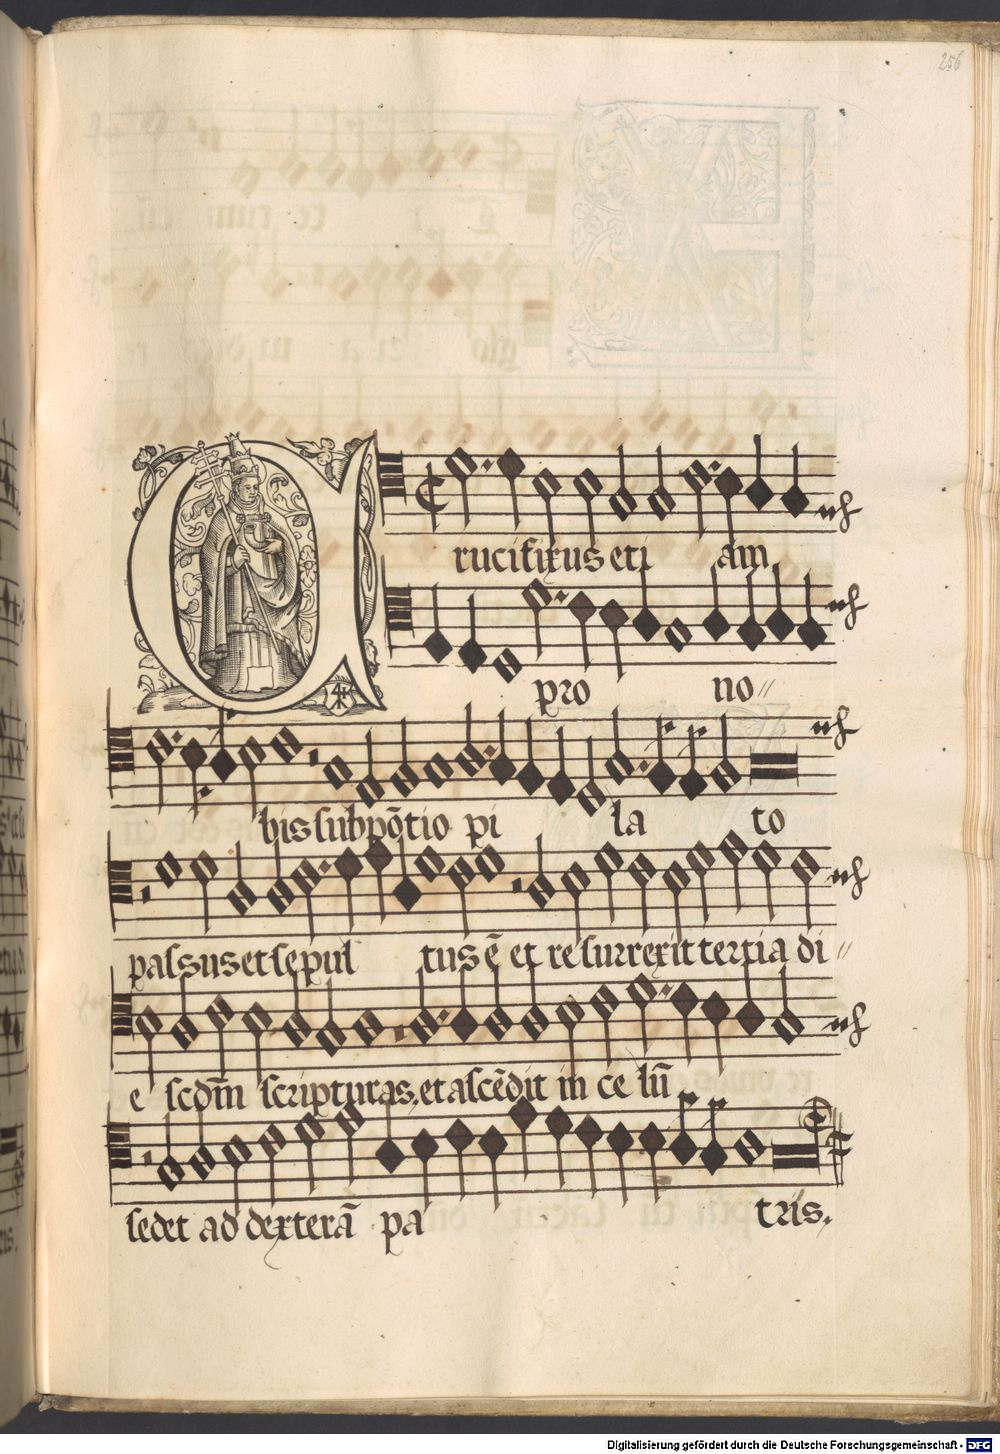 256
Crucifixus eti am
pro no //
bis sub põtio pi la to
passus et sepul tus ẽ et resurrexit tertia di //
e scdm̃ scripturas. et ascẽdit in ce lũ
sedet ad dexterã pa tris.
Digitalisierung gefördert durch die Deutsche Forschungsgemeinschaft - DFG